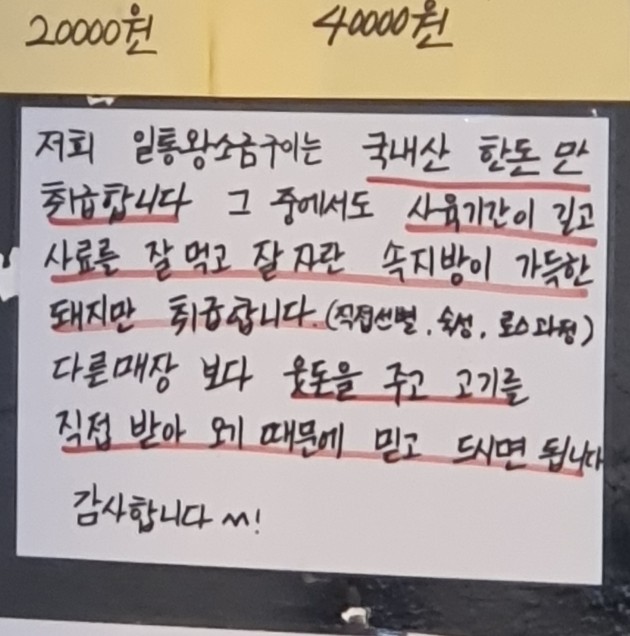 20000원 40000원
저희 일통왕소금구이는 국내산 한돈 만
취급합니다 그 중에서도 사육기간이 길고
사료를 잘 먹고 잘 자란 속지방이 가득한
돼지만 취급합니다.(직접선별, 숙성, 로스과정)
다른매장 보다 웃돈을 주고 고기를
직접 받아 오기 때문에 믿고 드시면 됩니다
감사합니다 ^^!